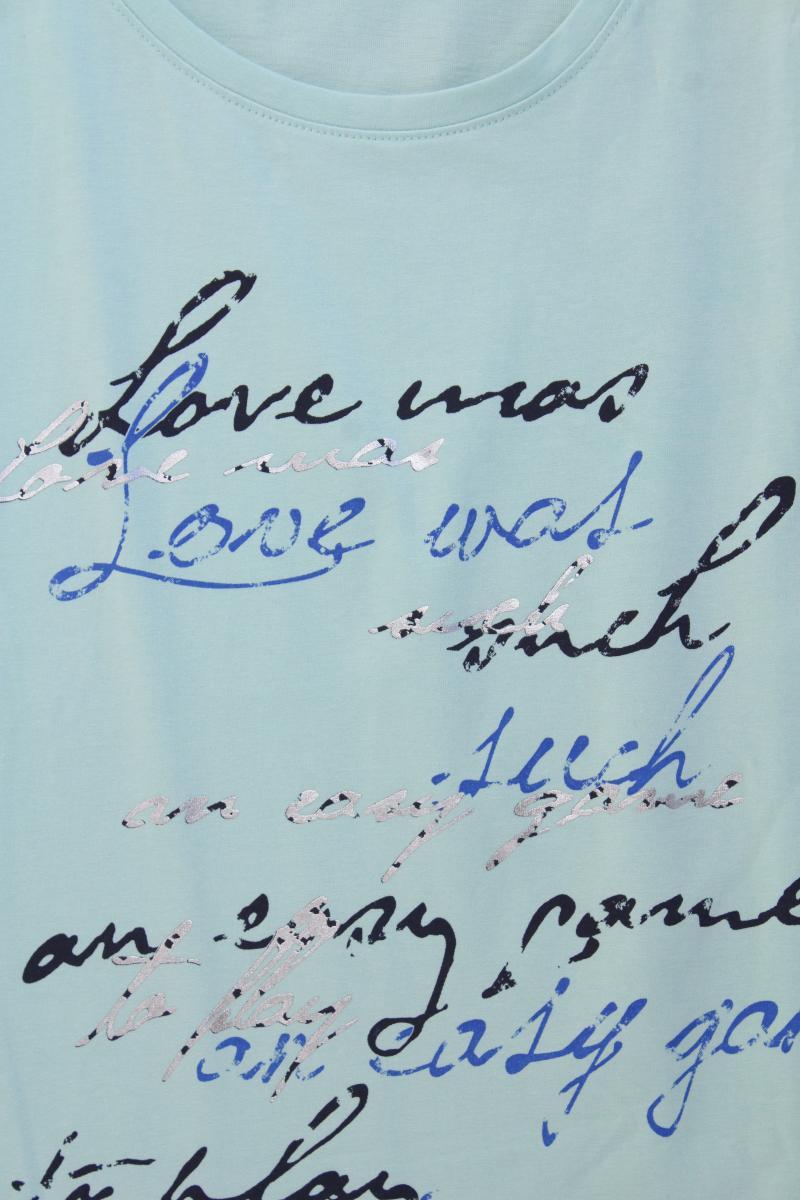 Love was
Love was
Love was
such
such
such
an easy game
an easy game
to play
an easy gam
to play